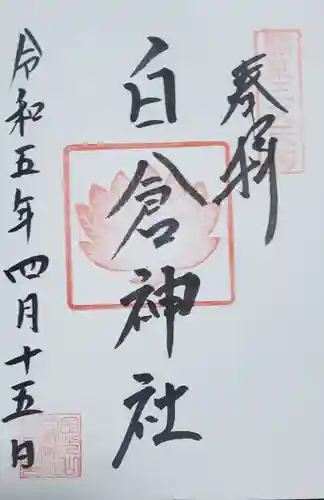 奉拝
白倉神社
令和五年四月十五日